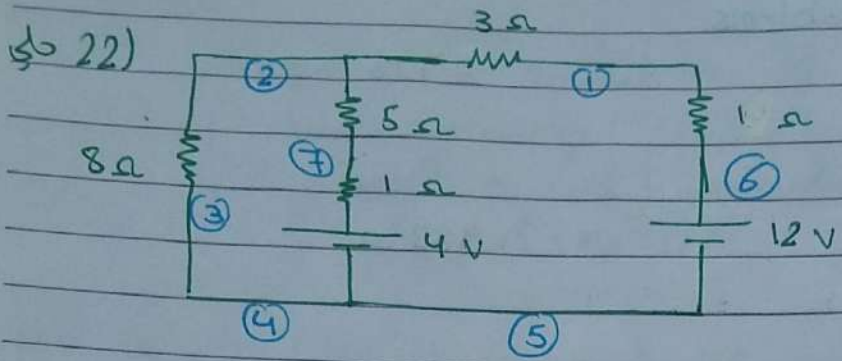 22)
3 Ω
②
①
5 Ω
1 Ω
8 Ω
⑦
1 Ω
⑥
③
4 V
12 V
④
⑤